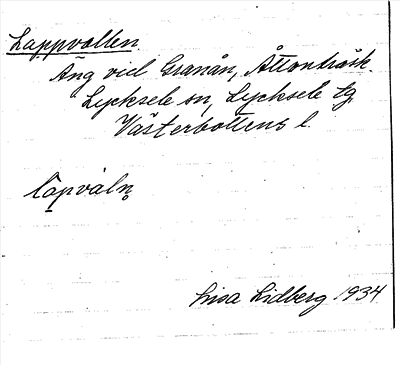 Lappvallen
Äng vid Granån, Åttonträsk.
Lycksele sn, Lycksele tg
Västerbottens l.
Lisa Lidberg 1934